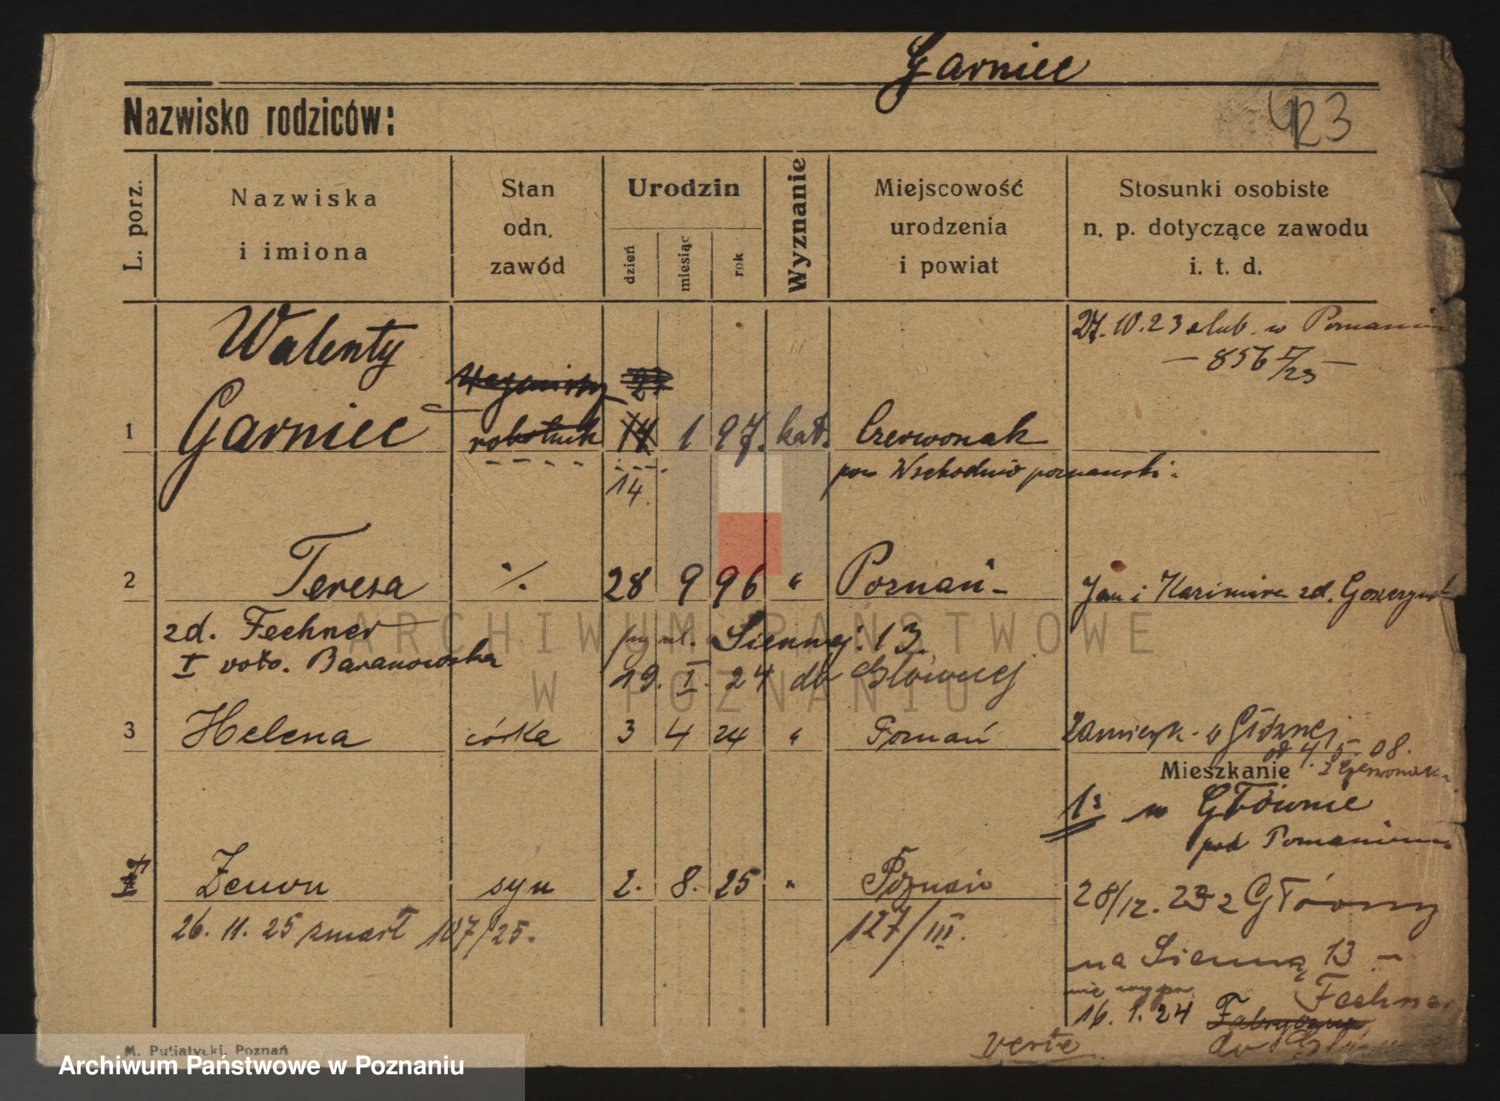 Garniec
Nazwisko rodziców:
23
L. porz.
Nazwiska
i imiona
Stan
odn.
zawód
Urodzin
dzień
miesiąc
rok
Wyznanie
Miejscowość
urodzenia
i powiat
Stosunki osobiste
n. p. dotyczące zawodu
i. t. d.
27.10.23 slub. w Poznaniu
— 856 —
Walenty
1 Garniec robotnik 14 1 97. kat. Czerwonak
14
pow Wschodnio poznanski.
2 Teresa % 28 9 96 " Poznań - Jan i Kazimira zd.
zd. Fechner
I voto. Baranowska
przy ul. Siennej. 13.
19. I. 24 do Głównej
3 Helena córka 3 4 24 " Poznań
Zamieszk. w Głównej
od 4.5.08.
Mieszkanie
z Czerwonaka
1: w Głównie
pod Poznaniem
Zenon syn 2. 8. 25 " Poznań
26. 11. 25 zmarł 107/25.
127/III.
28/12. 23 z Główny
na Sienną 13 -
Fechner
16. 1. 24
verte
M. Putiatycki, Poznań
ARCHIWUM PAŃSTWOWE
W POZNANIU
Archiwum Państwowe w Poznaniu